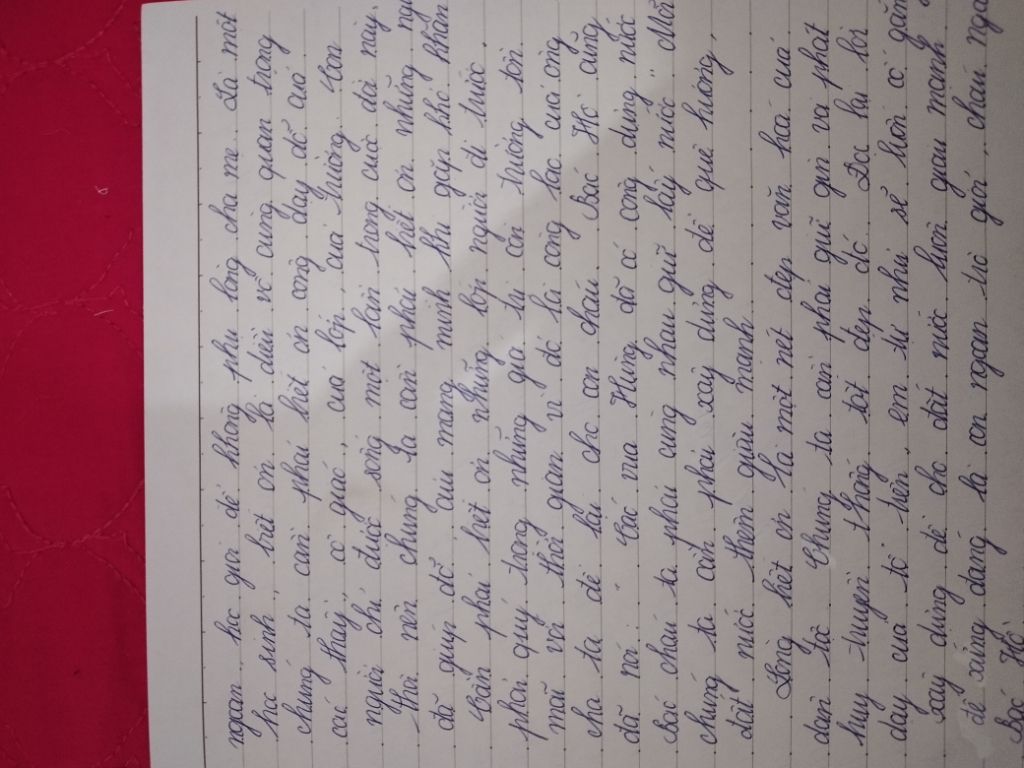 ngoan, học giỏi để không phụ lòng cha mẹ. Là một
học sinh, biết ơn là điều vô cùng quan trọng
chúng ta cần phải biết ơn công dạy dỗ của
các thầy, cô giáo, của lớp, của trường. Con
người chỉ được sống một lần trong cuộc đời này,
thế nên chúng ta cần phải biết ơn những
đã giúp đỡ cưu mang mình khi gặp khó khăn
Cần phải biết ơn những lớp người đi trước
phải quý trọng những gia tài còn trường tồn
mãi với thời gian vì đó là công lao của ông
cha ta để lại cho con cháu. Bác Hồ cũng
đã nói "Các vua Hùng đã có công dựng nước
Bác cháu ta phải cùng nhau giữ lấy nước". Mãi
chúng ta cần phải xây dựng để quê hương,
đất nước thêm giàu mạnh.
Lòng biết ơn là một nét đẹp văn hoá của
dân tộc. Chúng ta cần phải giữ gìn và phát
huy truyền thống tốt đẹp đó. Da lời
dạy của tổ tiên, em tự nhủ sẽ luôn cố gắng
xây dựng để cho đất nước luôn giàu mạnh
để xứng đáng là con ngoan trò giỏi, cháu ngoan
Bác Hồ.